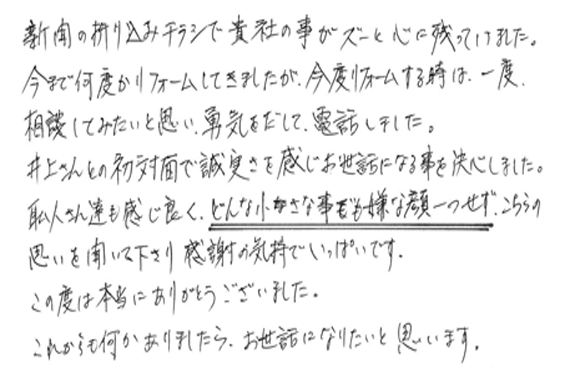 新聞の折り込みチラシで貴社の事がズーと心に残っていました。
今まで何度かリフォームしてきましたが、今度リフォームする時は、一度、
相談してみたいと思い、勇気をだして、電話しました。
井上さんとの初対面で誠実さを感じお世話になる事を決心しました。
職人さん達も感じ良く、どんな小さな事でも嫌な顔一つせず、こちらの
思いを聞いて下さり感謝の気持でいっぱいです。
この度は本当にありがとうございました。
これからも何かありましたら、お世話になりたいと思います。